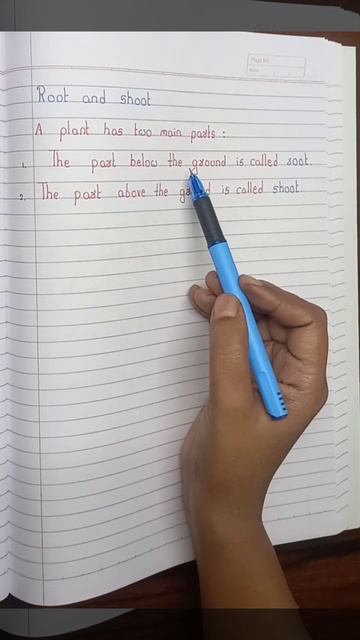 Page No.
Date
Root and shoot
A plant has two main parts :
1. The part below the ground is called root.
2. The part above the ground is called shoot.